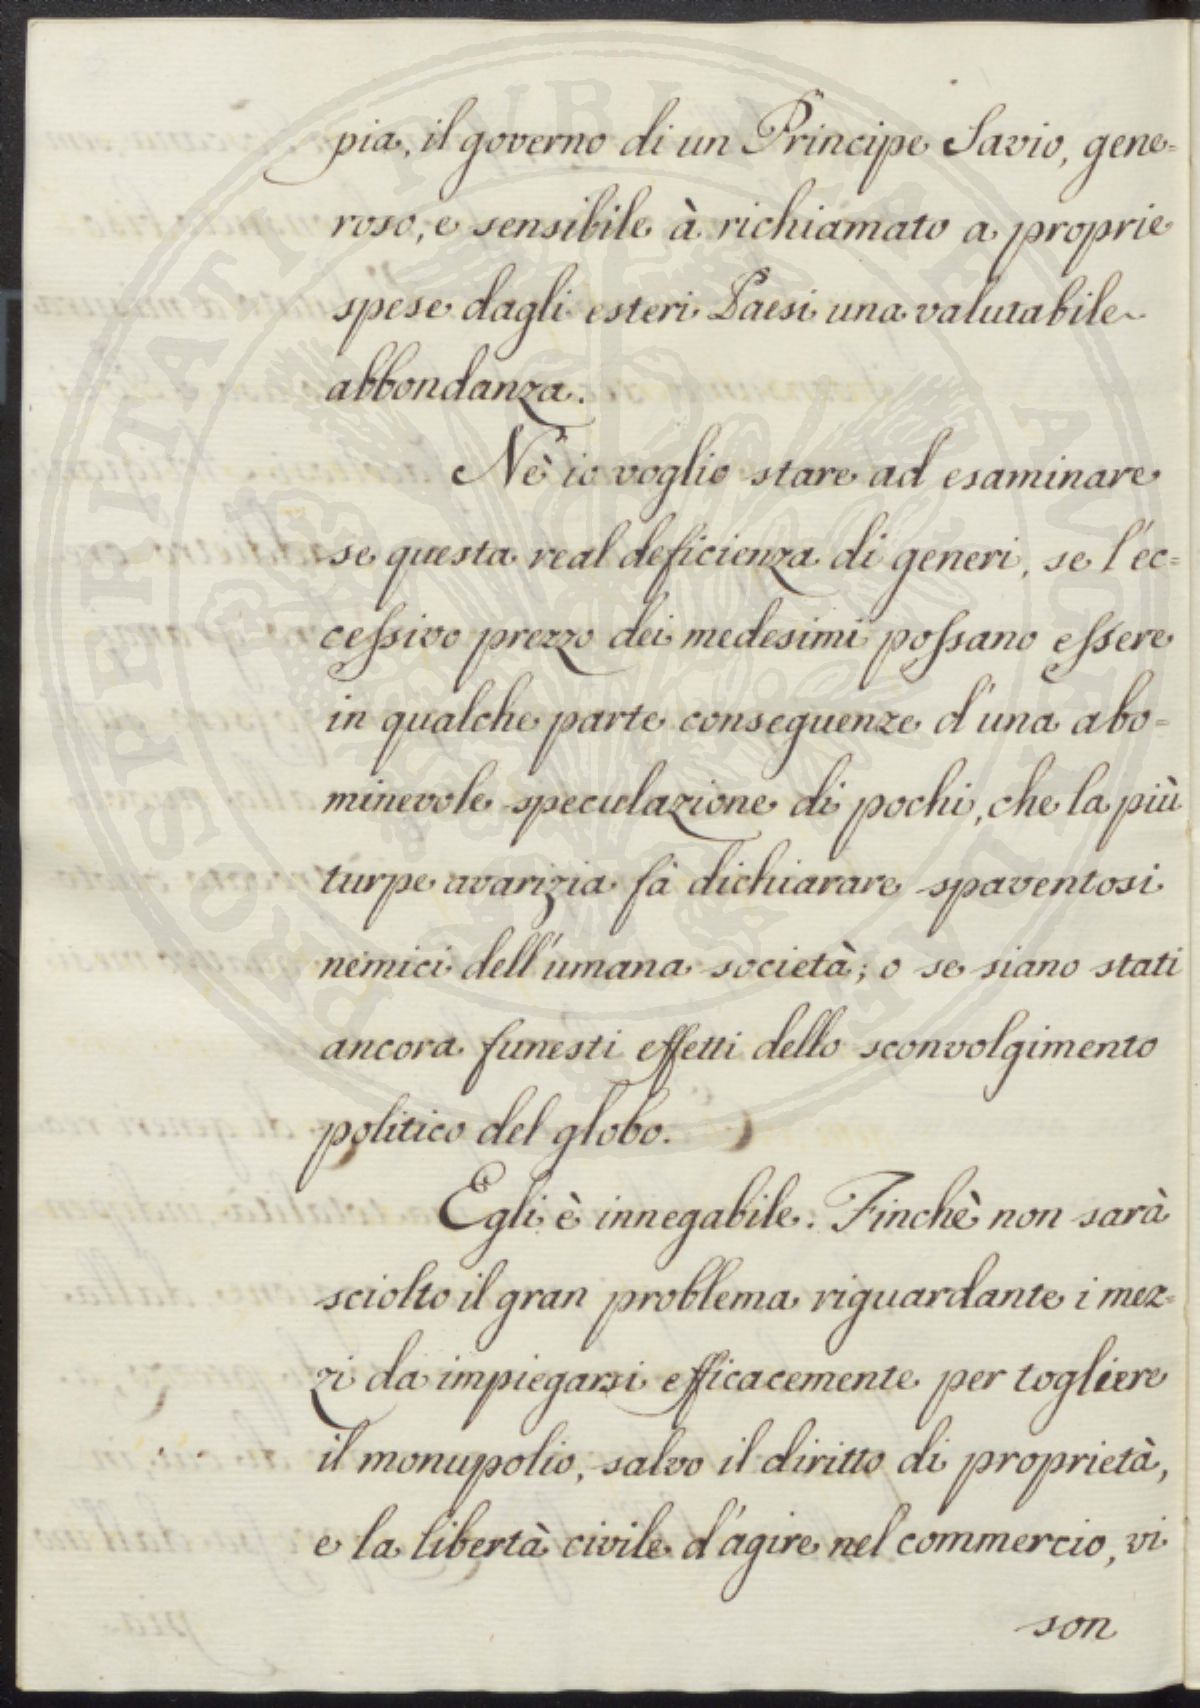 pia, il governo di un Principe Savio, gene=
roso, e sensibile à richiamato a proprie
spese dagli esteri Paesi una valutabile
abbondanza.
Nè io voglio stare ad esaminare
se questa real deficienza di generi, se l'ec=
cessivo prezzo dei medesimi possano essere
in qualche parte conseguenze d'una abo=
minevole speculazione di pochi, che la più
turpe avarizia fà dichiarare spaventosi
nemici dell'umana società; o se siano stati
ancora funesti effetti dello sconvolgimento
politico del globo.
Egli è innegabile: Finchè non sarà
sciolto il gran problema riguardante i mez=
zi da impiegarsi efficacemente per togliere
il monupolio, salvo il diritto di proprietà,
e la libertà civile d'agire nel commercio, vi
son
PROSPERITATI PUBLICAE AUGENDAE